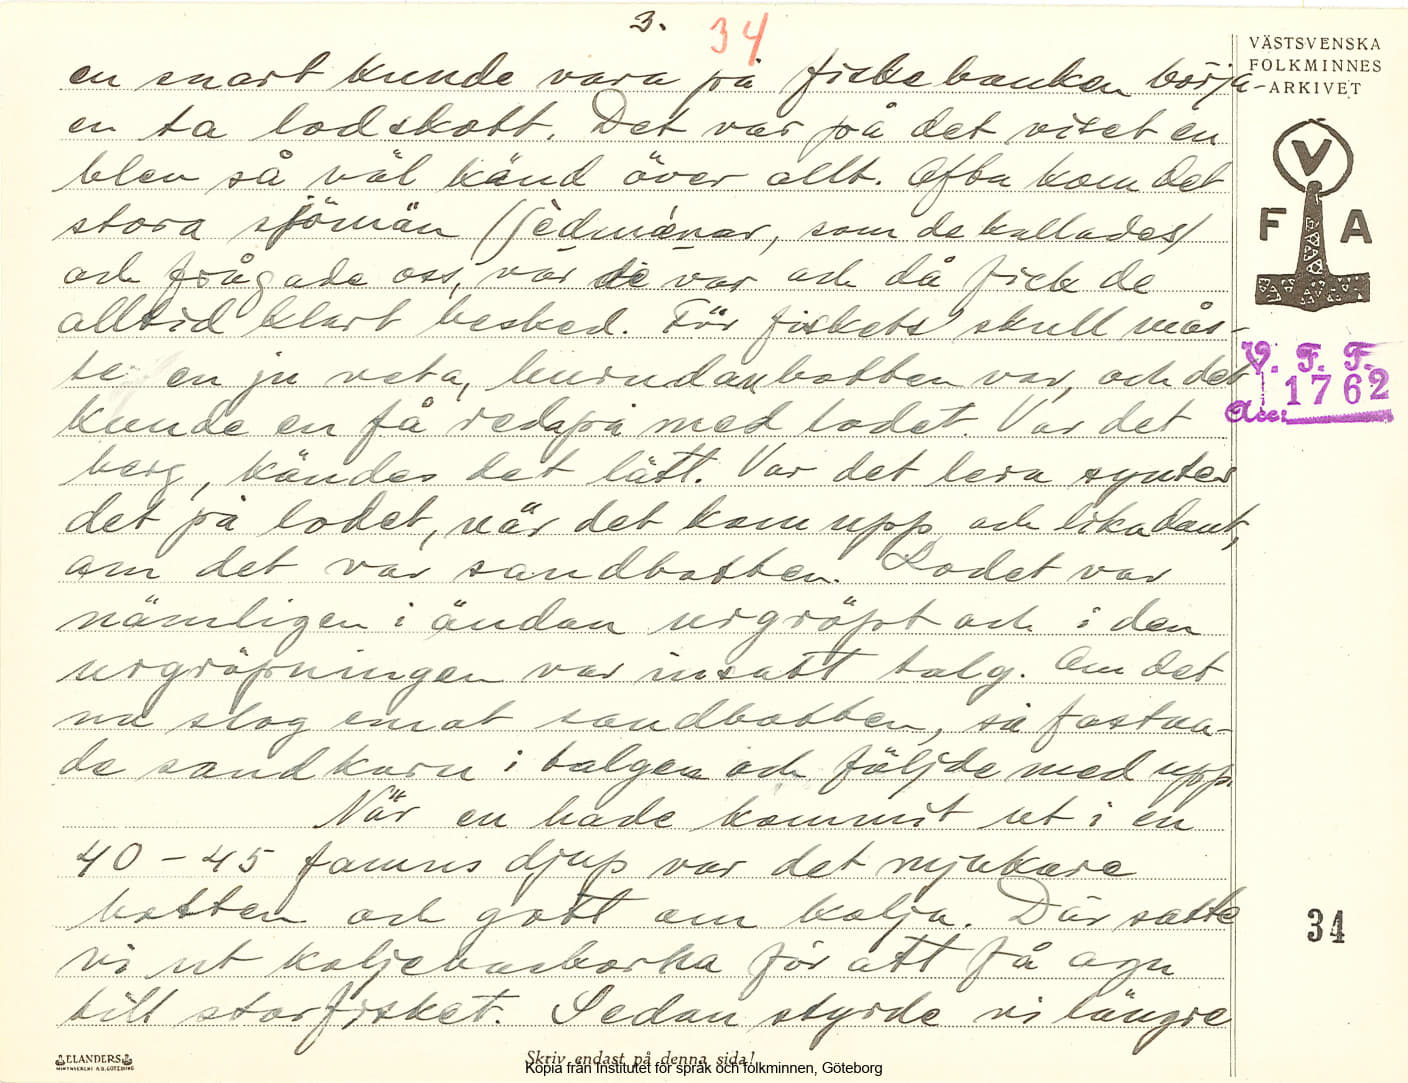 3. 34
VÄSTSVENSKA
FOLKMINNES
-ARKIVET
en snart kunde vara på fiskebanken börja-
en ta lodskott. Det var på det viset en
blev så väl känd över allt. Ofta kom det
stora sjömän (sèdménar, som de kallades)
och frågade oss, var de var och då fick de
alltid klart besked. För fiskets skull mås-
te en ju veta, hurudan botten var, och det
kunde en få reda på med lodet. Var det
berg, kändes det lätt. Var det lera syntes
det på lodet, när det kom upp och likadant,
om det var sandbotten. Lodet var
nämligen i ändan urgröpt och i den
urgröpningen var insatt talg. Om det
nu slog emot sandbotten, så fastna-
de sandkorn i talgen och följde med upp.
När en hade kommit ut i en
40 – 45 famns djup var det mjukare
botten och gott om kolja. Där satte
vi ut koljebackorna för att få agn
till storfisket. Sedan styrde vi längre
V
F A
V. F. F.
Acc. 1762
34
ELANDERS
Skriv endast på denna sida!
Kopia från Institutet för språk och folkminnen, Göteborg